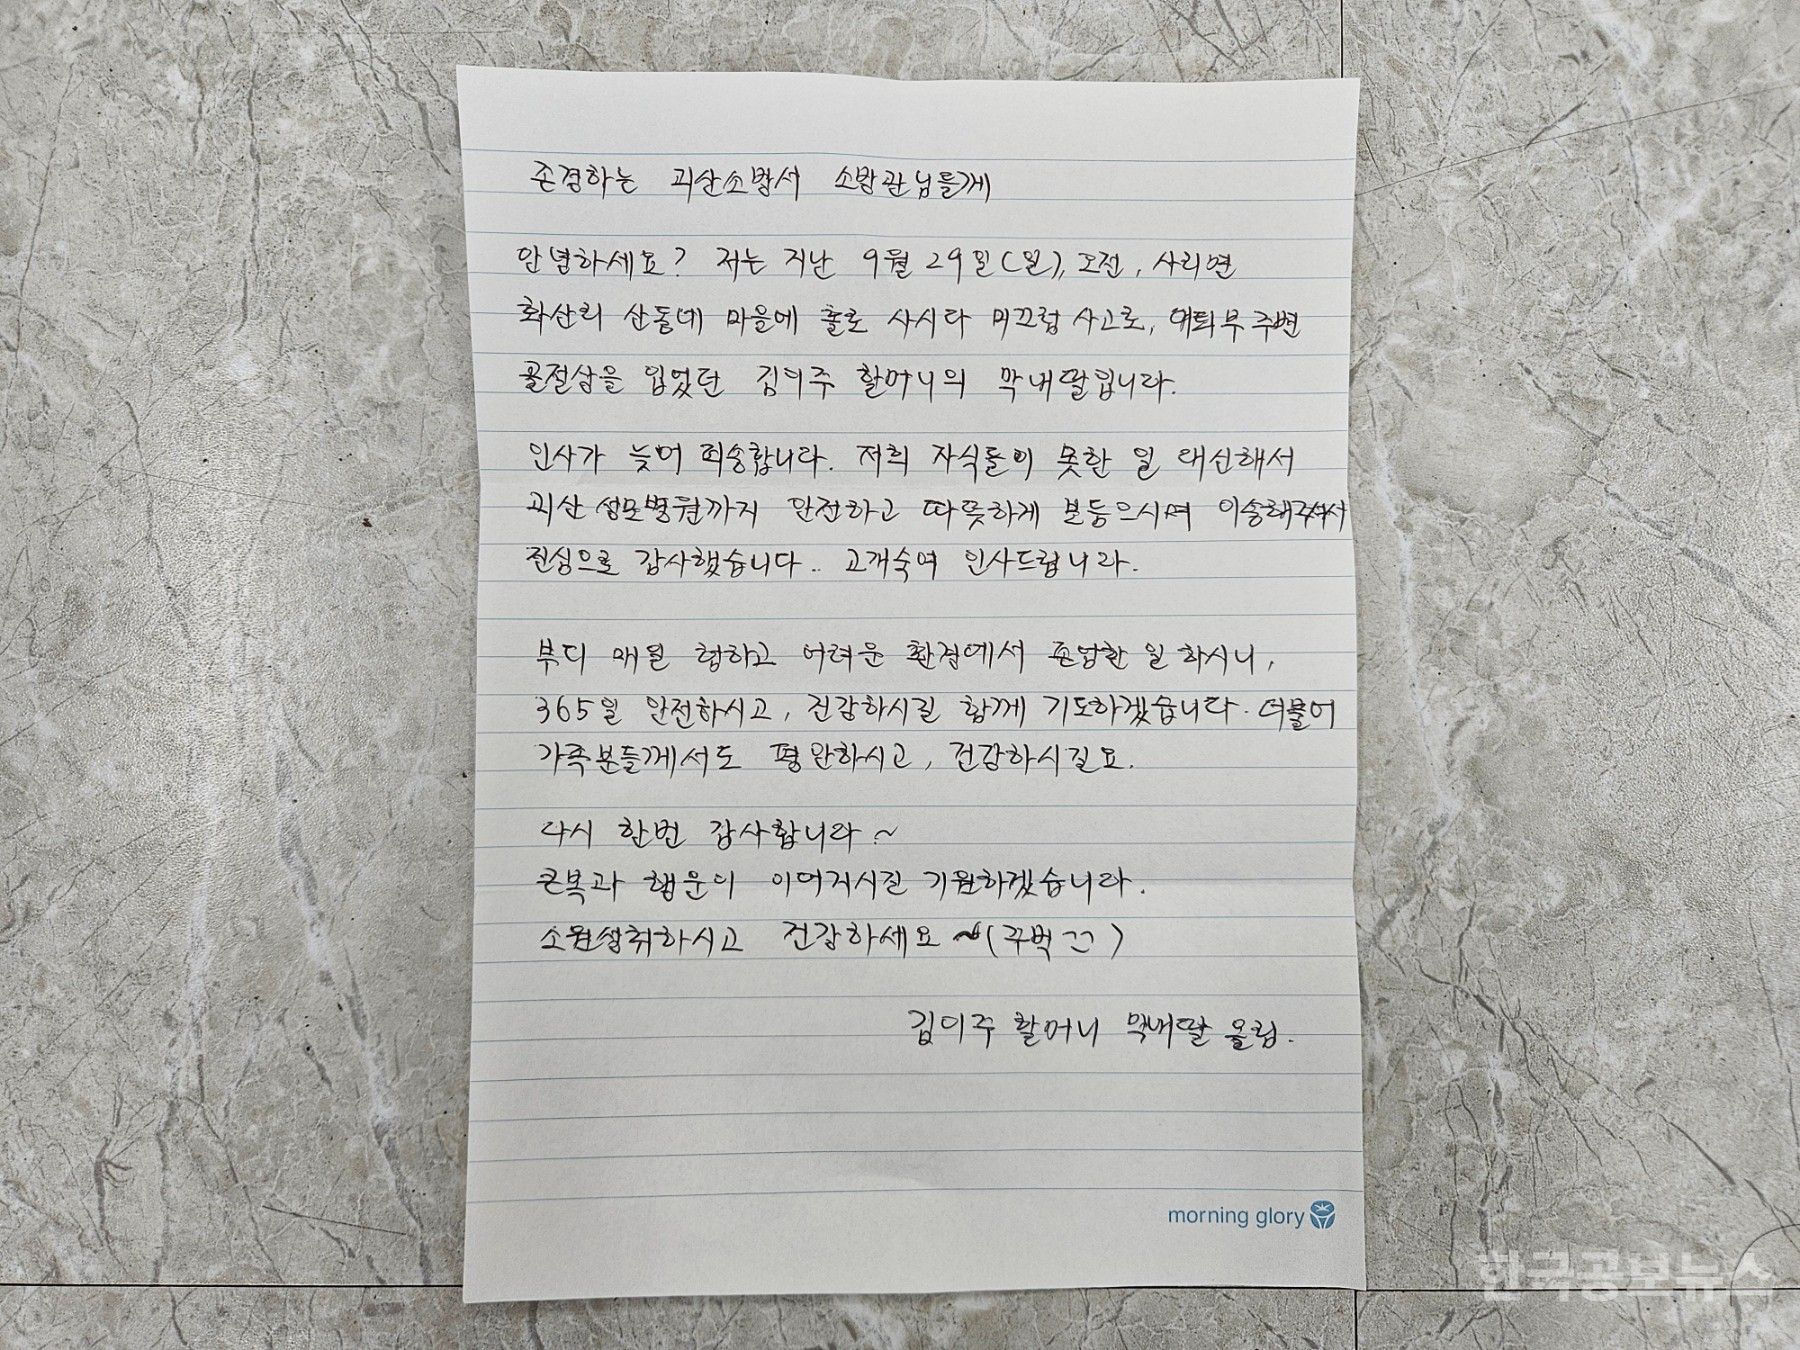 존경하는 괴산소방서 소방관님들께
안녕하세요? 저는 지난 9월 29일(일), 오전, 사리면
화산리 산동네 마을에 홀로 사시다 미끄럼 사고로, 대퇴부 주변
골절상을 입었던 김이주 할머니의 막내딸입니다.
인사가 늦어 죄송합니다. 저희 자식들이 못한 일 대신해서
괴산 성모병원까지 안전하고 따뜻하게 보듬으시며 이송해주셔서
진심으로 감사했습니다.. 고개숙여 인사드립니다.
부디 매일 험하고 어려운 환경에서 존엄한 일 하시니,
365일 안전하시고, 건강하시길 함께 기도하겠습니다. 더불어
가족분들께서도 평안하시고, 건강하시길요.
다시 한번 감사합니다~
큰복과 행운이 이어지시길 기원하겠습니다.
소원성취하시고 건강하세요~(꾸벅^^)
김이주 할머니 막내딸 올림.
morning glory
한국공보뉴스